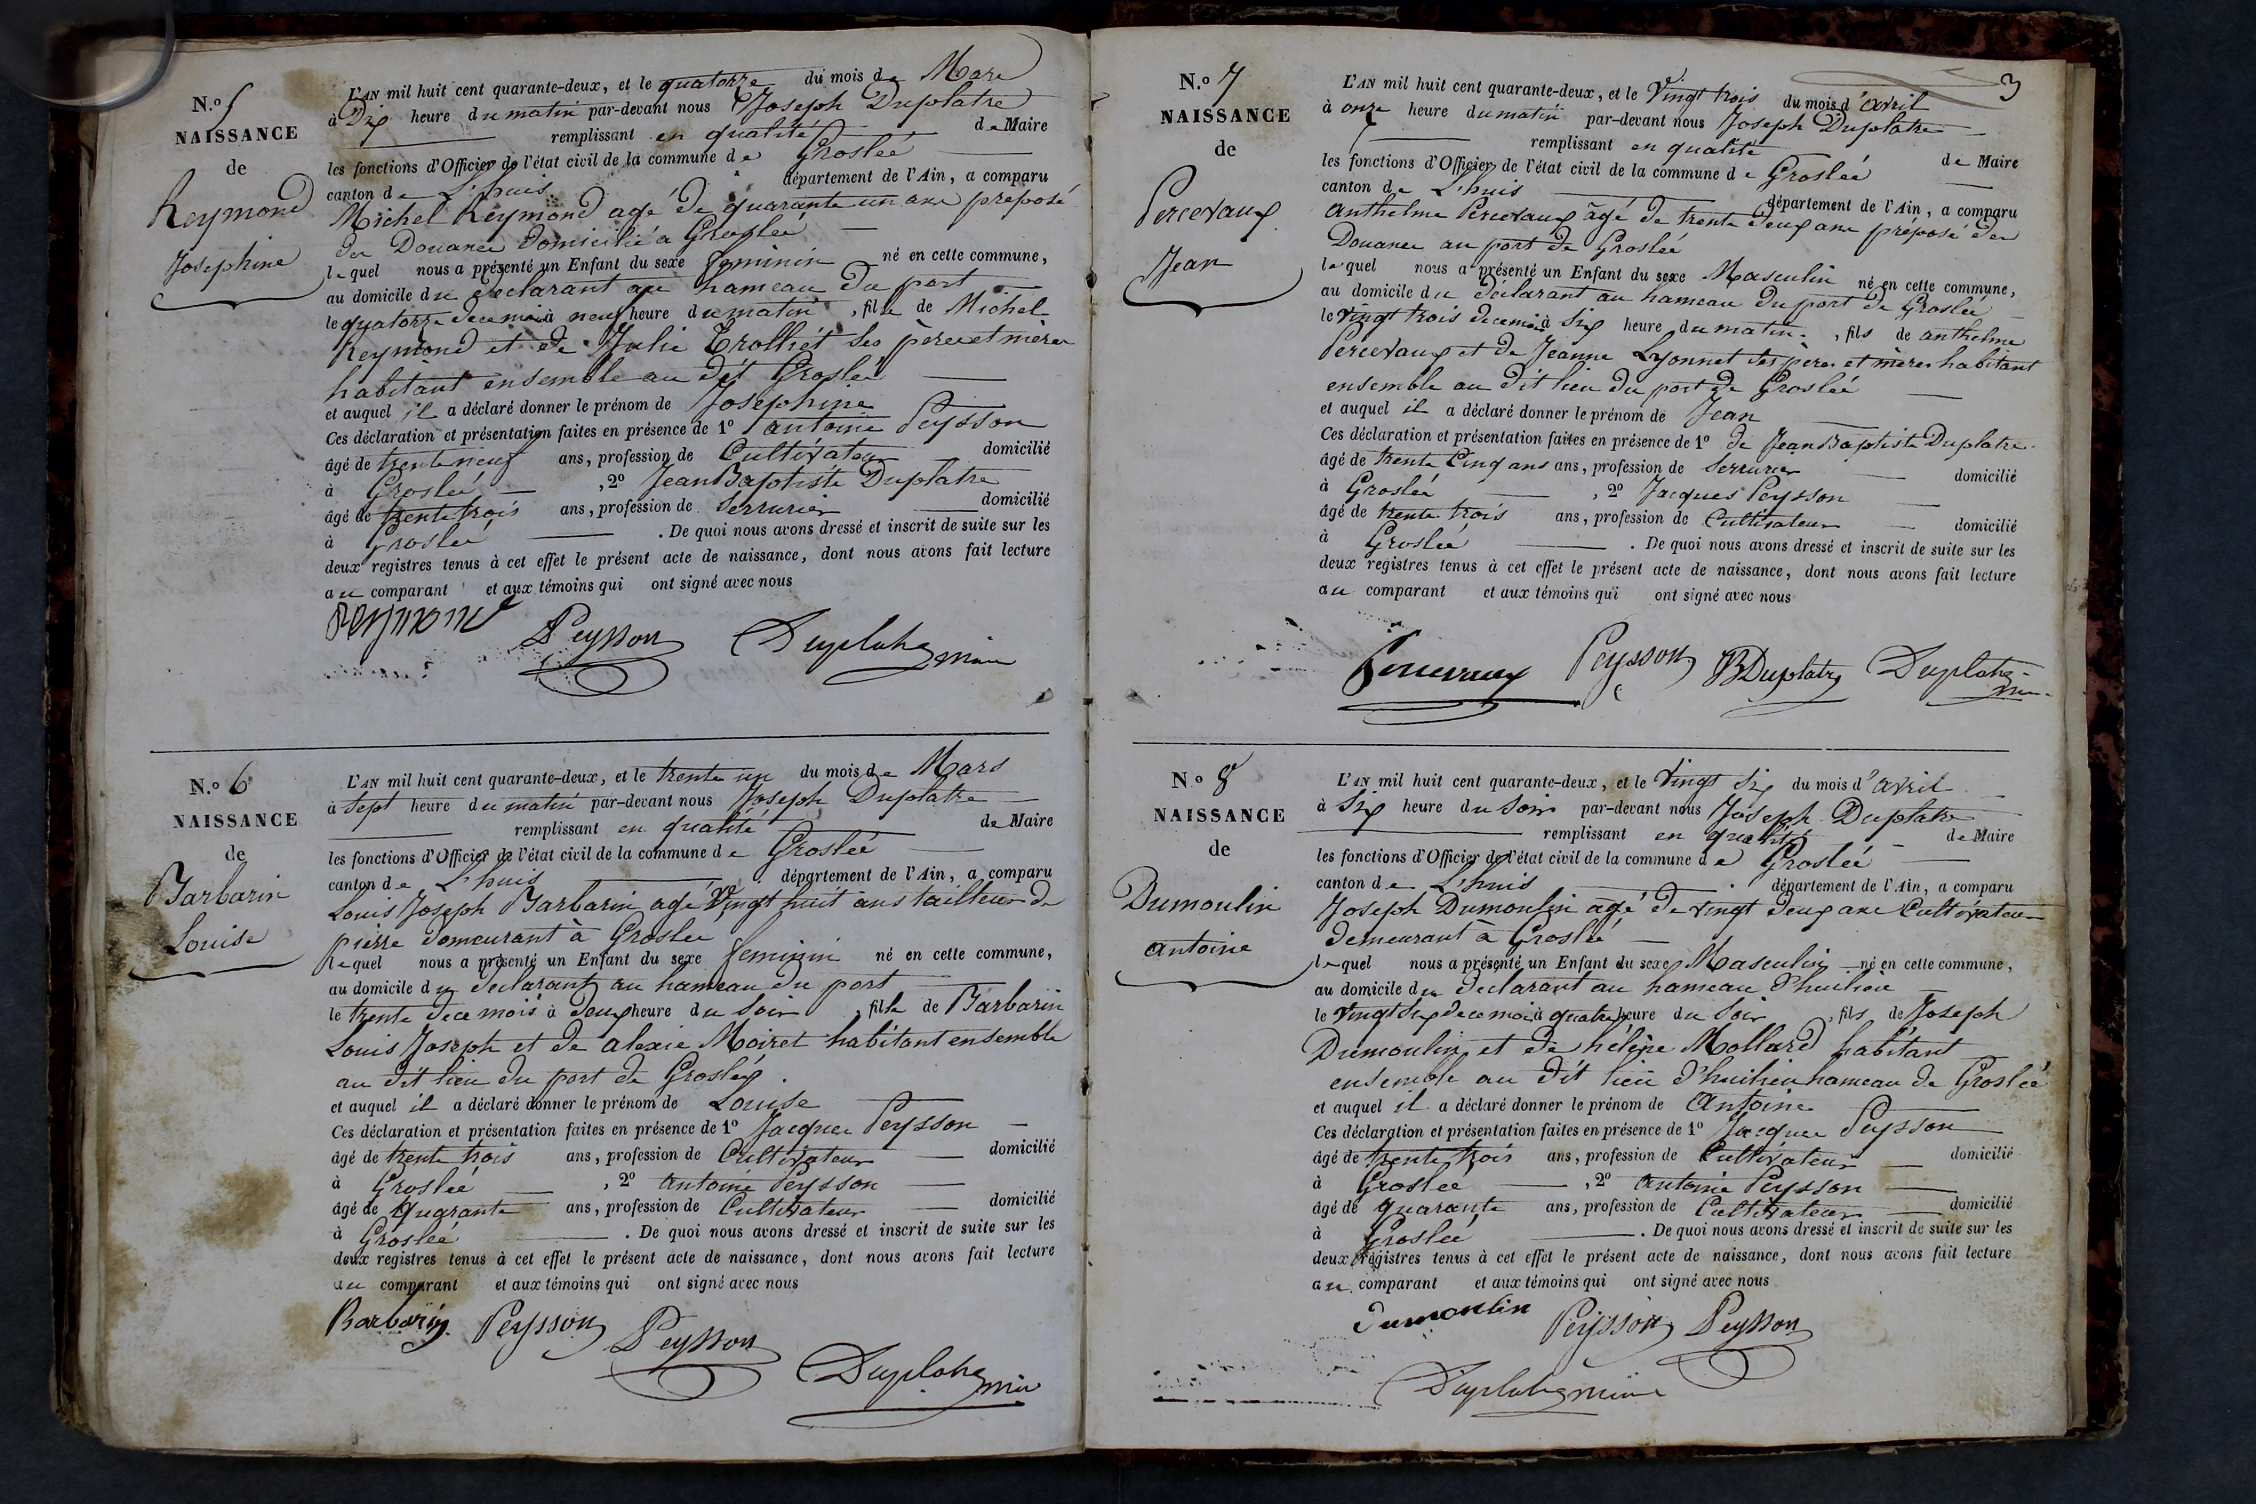 N.o 5
NAISSANCE
de
Reymond
Josephine
L'AN mil huit cent quarante-deux, et le quatorze du mois de Mars
à Dix heure du matin par-devant nous Joseph Duplatre
remplissant en qualité de Maire
les fonctions d'Officier de l'état civil de la commune de Groslée
canton de L'huis département de l'Ain, a comparu
Michel Reymond agé de quarante un ans preposé
des Douanes domicilié a Groslée
lequel nous a présenté un Enfant du sexe feminin né en cette commune,
au domicile du declarant au hameau du port
le quatorze dece mois à neuf heure du matin, fille de Michel
Reymond et de Julie Trolliét ses pères et mères
habitant ensemble au dit Groslée
et auquel il a déclaré donner le prénom de Josephine
Ces déclaration et présentation faites en présence de 1o antoine Peysson
âgé de trente neuf ans, profession de Cultivateur domicilié
à Groslée, 2o Jean Baptiste Duplatre
âgé de trente trois ans, profession de Serrurier domicilié
à Groslée. De quoi nous avons dressé et inscrit de suite sur les
deux registres tenus à cet effet le présent acte de naissance, dont nous avons fait lecture
au comparant et aux témoins qui ont signé avec nous
Reymond
Peysson Duplatre maire
N.o 6
NAISSANCE
de
Barbarin
Louise
L'AN mil huit cent quarante-deux, et le trente un du mois de Mars
à sept heure du matin par-devant nous Joseph Duplatre
remplissant en qualité de Maire
les fonctions d'Officier de l'état civil de la commune de Groslée
canton de L'huis département de l'Ain, a comparu
Louis Joseph Barbarin agé Vingt huit ans tailleur de
pierre demeurant à Groslee
lequel nous a présenté un Enfant du sexe feminin né en cette commune,
au domicile du declarant au hameau du port
le trente dece mois à deux heure du Soir, fille de Barbarin
Louis Joseph et de alexie Moiret habitant ensemble
au dit lieu du port de Groslée.
et auquel il a déclaré donner le prénom de Louise
Ces déclaration et présentation faites en présence de 1o Jacques Peysson
âgé de trente trois ans, profession de Cultivateur domicilié
à Groslée, 2o antoine Peysson
âgé de quarante ans, profession de Cultivateur domicilié
à Groslée. De quoi nous avons dressé et inscrit de suite sur les
deux registres tenus à cet effet le présent acte de naissance, dont nous avons fait lecture
au comparant et aux témoins qui ont signé avec nous
Barbarin Peysson Peysson
Duplatre maire
3
N.o 7
NAISSANCE
de
Percevaux
Jean
L'AN mil huit cent quarante-deux, et le Vingt trois du mois d'avril
à onze heure du matin par-devant nous Joseph Duplatre
remplissant en qualité de Maire
les fonctions d'Officier de l'état civil de la commune de Groslée
canton de L'huis département de l'Ain, a comparu
anthelme Percevaux âgé de trente deux ans préposé des
Douanes au port de Groslée
lequel nous a présenté un Enfant du sexe Masculin né en cette commune,
au domicile du déclarant au hameau du port de Groslée
le Vingt trois decemois à Six heure du matin, fils de anthelme
Percevaux et de Jeanne Lyonnet ses pères et mères habitant
ensemble au dit lieu du port de Groslée
et auquel il a déclaré donner le prénom de Jean
Ces déclaration et présentation faites en présence de 1o de Jean Baptiste Duplatre
âgé de trente Cinq ans ans, profession de Serrurier domicilié
à Groslée, 2o Jacques Peysson
âgé de trente trois ans, profession de Cultivateur domicilié
à Groslée. De quoi nous avons dressé et inscrit de suite sur les
deux registres tenus à cet effet le présent acte de naissance, dont nous avons fait lecture
au comparant et aux témoins qui ont signé avec nous
Percevaux Peysson JB Duplatre Duplatre
maire
No 8
NAISSANCE
de
Dumoulin
antoine
L'AN mil huit cent quarante-deux, et le Vingt Six du mois d'avril
à Six heure du Soir par-devant nous Joseph Duplatre
remplissant en qualité de Maire
les fonctions d'Officier de l'état civil de la commune de Groslée
canton de L'huis département de l'Ain, a comparu
Joseph Dumoulin âgé de vingt deux ans Cultivateur
demeurant à Groslée
lequel nous a présenté un Enfant du sexe Masculin né en cette commune,
au domicile du declarant au hameau d'huilieu
le Vingt Six dece mois à quatre heure du Soir, fils de Joseph
Dumoulin et de hélène Mollard habitant
ensemble au dit lieu d'huilieu hameau de Groslée
et auquel il a déclaré donner le prénom de Antoine
Ces déclaration et présentation faites en présence de 1o Jacques Peysson
âgé de trente trois ans, profession de Cultivateur domicilié
à Groslée, 2o antoine Peysson
âgé de quarante ans, profession de Cultivateur domicilié
à Groslée. De quoi nous avons dressé et inscrit de suite sur les
deux registres tenus à cet effet le présent acte de naissance, dont nous avons fait lecture
au comparant et aux témoins qui ont signé avec nous
dumoulin Peysson Peysson
Duplatre maire